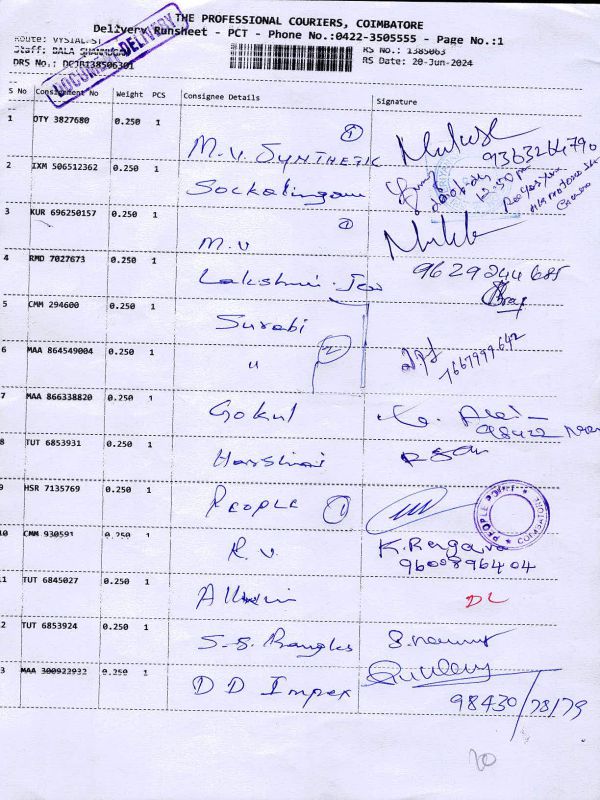 THE PROFESSIONAL COURIERS, COIMBATORE
Delivery Runsheet - PCT - Phone No.:0422-3505555 - Page No.:1
Route: VYSIAL ST
Staff: BALA SHANMUGA
RS No.: 1385063
DRS No.: DCJB138506301
RS Date: 20-Jun-2024
DOCUMENT DELIVERY
S No Consignment No Weight PCS Consignee Details Signature
1 OTY 3827680 0.250 1 M.V. SYNTHETIK 1 9363264790
2 IXM 506512362 0.250 1 Sockalingam 12.50 pm
3 KUR 696250157 0.250 1 M.V 1
4 RMD 7027673 0.250 1 Lakshmi. 9629244685
5 CMM 294600 0.250 1 Surabi
6 MAA 864549004 0.250 1 " 2 7667999642
7 MAA 866338820 0.250 1 Gokul 98422
8 TUT 6853931 0.250 1 Harshini
9 HSR 7135769 0.250 1 PEOPLE 1 PEOPLE COIMBATORE
10 CMM 930591 0.250 1 R.V. K. Rengara
9600896404
11 TUT 6845027 0.250 1 DL
12 TUT 6853924 0.250 1 S.S. Bangles
13 MAA 300922932 0.250 1 D D Impex
98430/78179
20